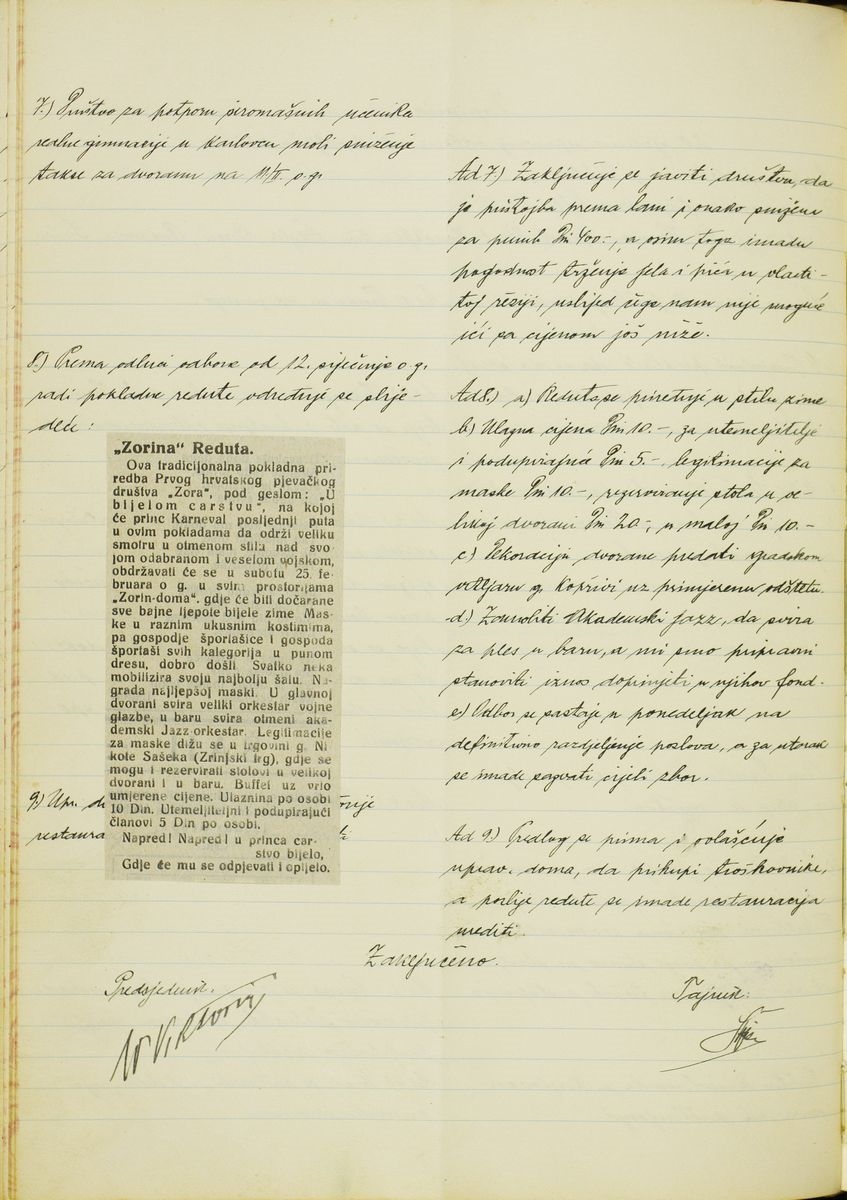 7.) Društvo za potporu siromašnih učenika
realne gimnazije u Karlovcu moli sniženje
takse za dvoranu na 11/II. o.g.
8.) Prema odluci odbora od 12. siječnja o.g.
radi pokladne redute određuje se slije-
deće:
„Zorina“ Reduta.
Ova tradicijonalna pokladna pri-
redba Prvog hrvatskog pjevačkog
društva „Zora“, pod geslom: „U
bijelom carstvu“, na kojoj
će princ Karneval posljednji puta
u ovim pokladama da održi veliku
smotru u otmenom stilu nad svo
jom odabranom i veselom vojskom,
obdržavati će se u subotu 25. fe-
bruara o g. u svim prostorijama
„Zorin-doma“. gdje će biti dočarane
sve bajne ljepote bijele zime Mas-
ke u raznim ukusnim kostimima,
pa gospodje športašice i gospoda
športaši svih kategorija u punom
dresu, dobro došli. Svatko neka
mobilizira svoju najbolju šalu. Na-
grada najljepšoj maski. U glavnoj
dvorani svira veliki orkestar vojne
glazbe, u baru svira otmeni aka-
demski Jazz-orkestar. Legitimacije
za maske dižu se u trgovini g. Ni
kote Sašeka (Zrinjski trg), gdje se
mogu i rezervirati stolovi u velikoj
dvorani i u baru. Buffet uz vrlo
umjerene cijene. Ulaznina po osobi
10 Din. Utemeljiteljni i podupirajući
članovi 5 Din po osobi.
Napred! Napred! u princa car-
stvo bijelo,
Gdje će mu se odpjevati i opijelo.
9.) Upr.
restaura
Ad 7.) Zaključuje se javiti društvu, da
je pristojba prema lani i onako snižena
za punih Din 400.-, a osim toga imadu
pogodnost trženja jela i pića u vlasti-
toj režiji, uslijed čega nam nije moguće
ići sa cijenom još niže.
Ad 8.) a) Reduta se priređuje u stilu zime
b) Ulazna cijena Din 10.-, za utemeljitelje
i podupirajuće Din 5.-, legitimacije za
maske Din 10.-, rezerviranje stola u ve-
likoj dvorani Din 20.-, u maloj Din 10.-
c) Dekoraciju dvorane predati gradskom
vrtljaru g. Koprivi uz primjerenu odštetu.
d.) Zamoliti Akademski jazz, da svira
za ples u baru, a mi smo pripravni
stanoviti iznos doprinjeti u njihov fond.
e) Odbor se sastaje u ponedeljak na
definitivno razdjeljenje poslova, a za utorak
se imade sazvati cijeli zbor.
Ad 9.) Predlog se prima i ovlašćuje
uprav. doma, da prikupi troškovnike,
a poslije redute se imade restauracija
urediti.
Zaključeno.
Predsjednik.
Tajnik: